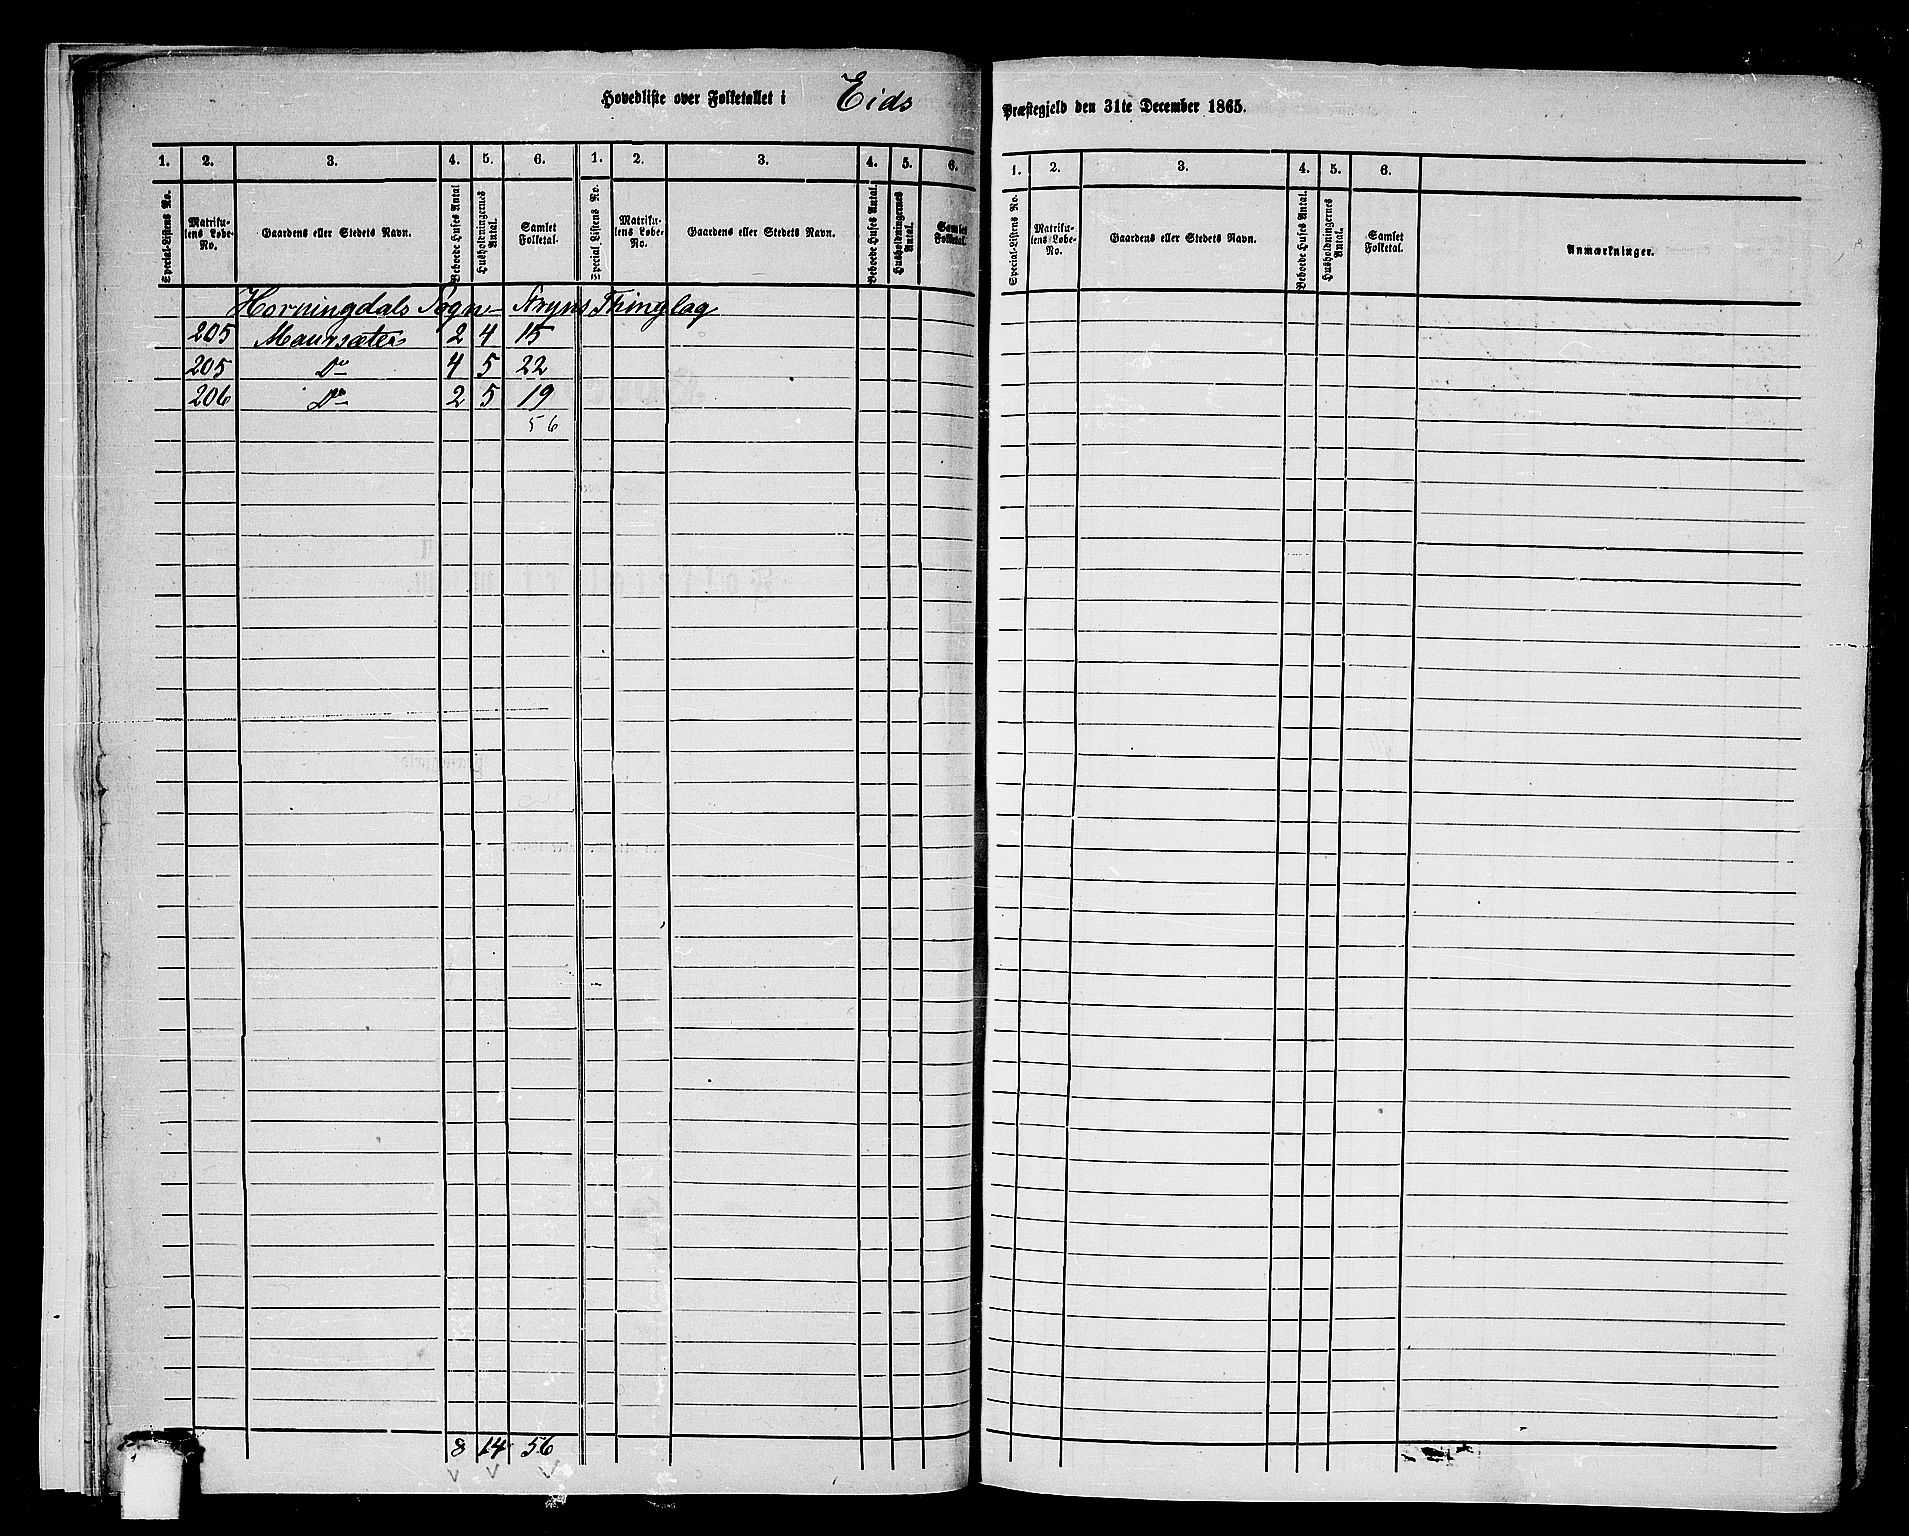 Hovedliste over Folketallet i Eids Præstegjeld den 31te December 1865.
1. 2. 3. 4. 5. 6. 1. 2. 3. 4. 5. 6.
Special-Listens No. Matrikulens Løbe-No. Gaardens eller Stedets Navn. Beboede Huses Antal Husholdningernes Antal. Samlet Folketal. Special Listens No. Matrikulens Løbe-No. Gaardens eller Stedets Navn. Beboede Huses Antal. Husholdningernes Antal. Samlet Folketal.
Horningdals Sogn - Stryns Thinglag
205 Maursæter 2 4 15
205 Do 4 5 22
206 Do 2 5 19
56
8 14 56
1. 2. 3. 4. 5. 6.
Special-Listens No. Matrikulens Løbe-No. Gaardens eller Stedets Navn. Beboede Huses Antal. Husholdningernes Antal. Samlet Folketal. Anmærkninger.